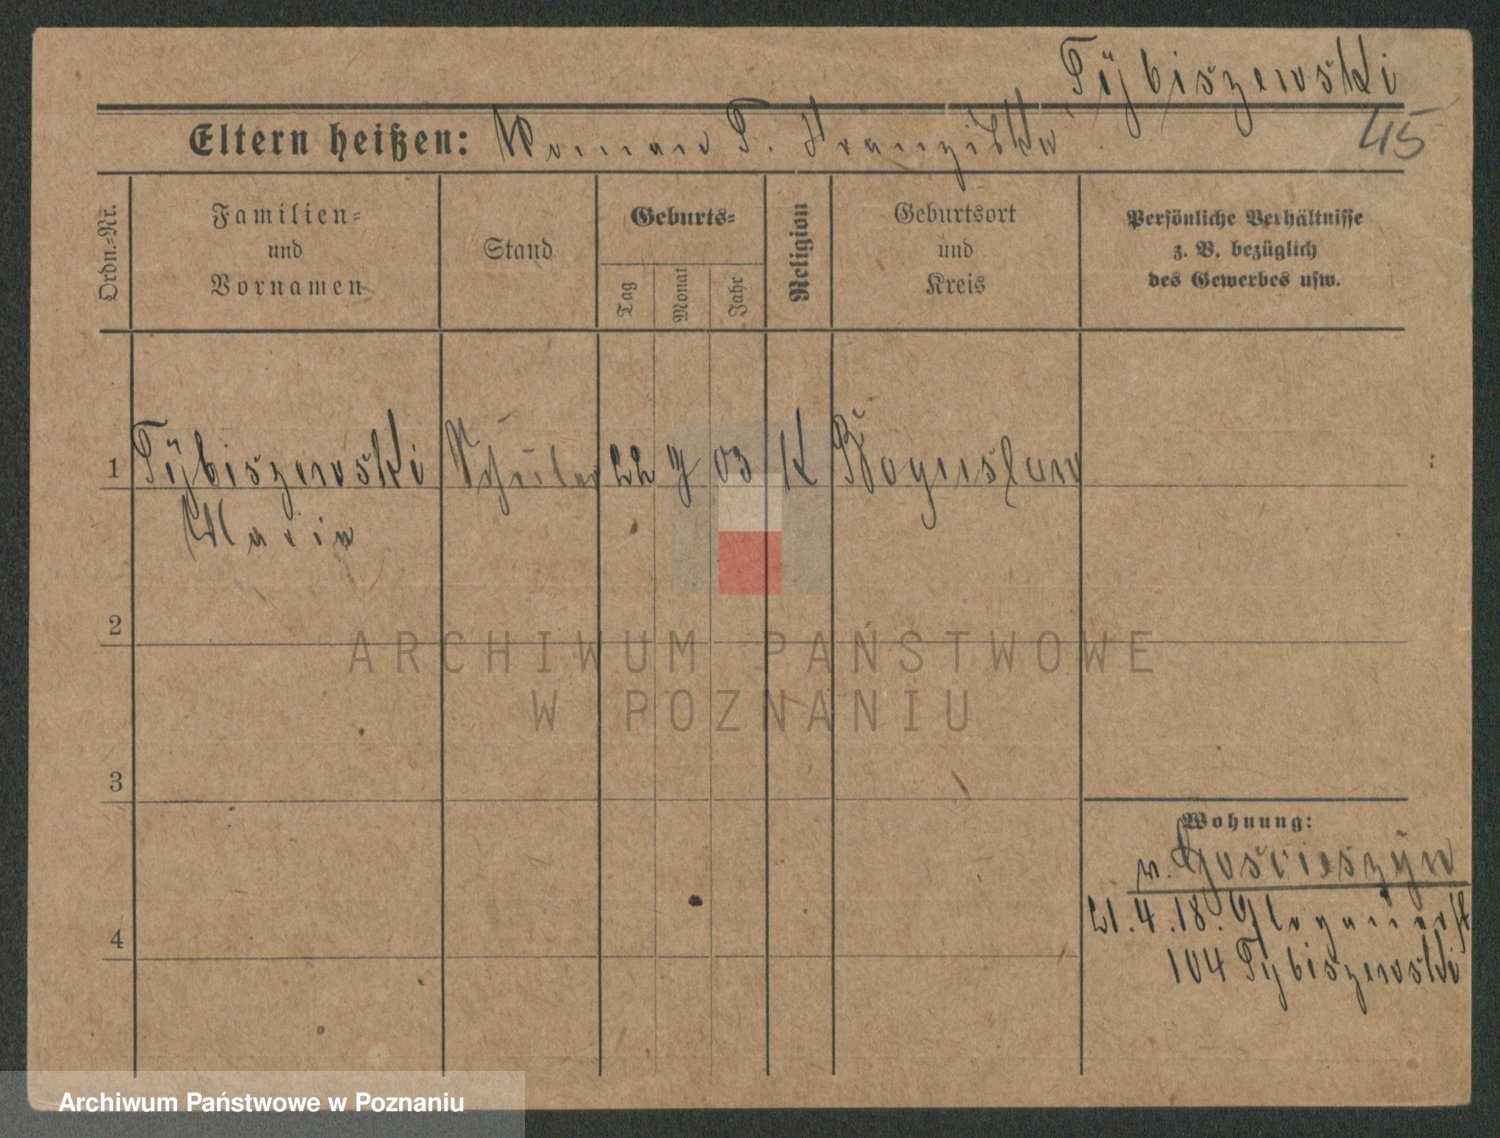 Tÿbiszewski
45
Eltern heißen: Roman T. Franziska
Ordn.-Nr.
Familien-
und
Vornamen
Stand
Geburts-
Tag
Monat
Jahr
Religion
Geburtsort
und
Kreis
Persönliche Verhältnisse
z. B. bezüglich
des Gewerbes usw.
1 Tÿbiszewski Schüler 22 9 03 K Boguslaw
Maria
2
3
4
Wohnung:
v. Gościeszyn
21.4.18. Glogauerst
104 Tybiszewski
ARCHIWUM PAŃSTWOWE
W POZNANIU
Archiwum Państwowe w Poznaniu